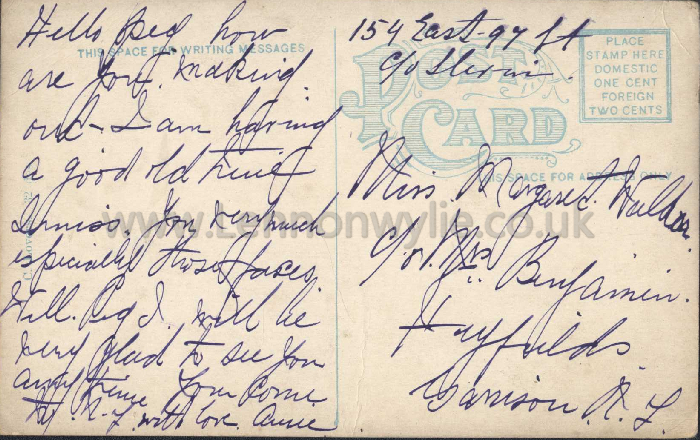 Hello Peg how
THIS SPACE FOR WRITING MESSAGES
are you making
out - I am having
a good old time
I miss. You very much
especially those faces
Well. Peg I. will be
very glad to see you
any time You Come
to N.Y. with love. Annie
154 East-97 St
c/o
POST CARD
PLACE
STAMP HERE
DOMESTIC
ONE CENT
FOREIGN
TWO CENTS
THIS SPACE FOR ADDRESS ONLY
Miss. Margaret. Walker
c/o. Mrs
Benjamin.
Hayfields.
Garrison N. Y.
www.Lennonwylie.co.uk